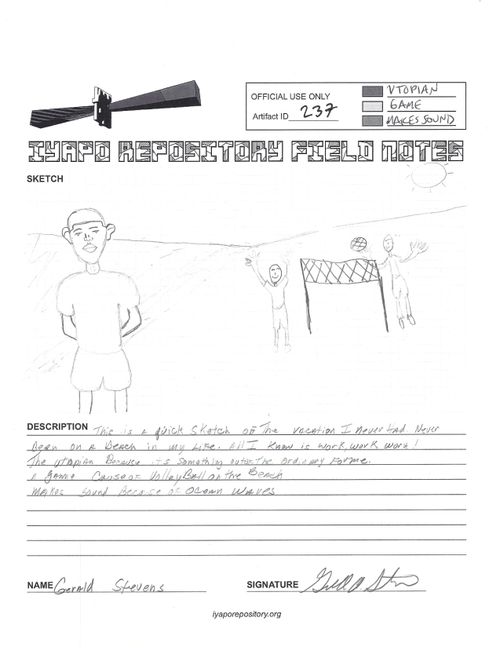 OFFICIAL USE ONLY
Artifact ID 237
UTOPIAN
GAME
MAKES SOUND
IYAPO REPOSITORY FIELD NOTES
SKETCH
DESCRIPTION This is a quick sketch of The vacation I never had. Never
Been on a Beach in my Life. All I know is work, work work!
The utopian Because its something outof the ordinary for me.
A game Cause of VolleyBall on the Beach
Makes sound Because of Ocean waves
NAME Gerald Stevens
SIGNATURE
iyaporepository.org